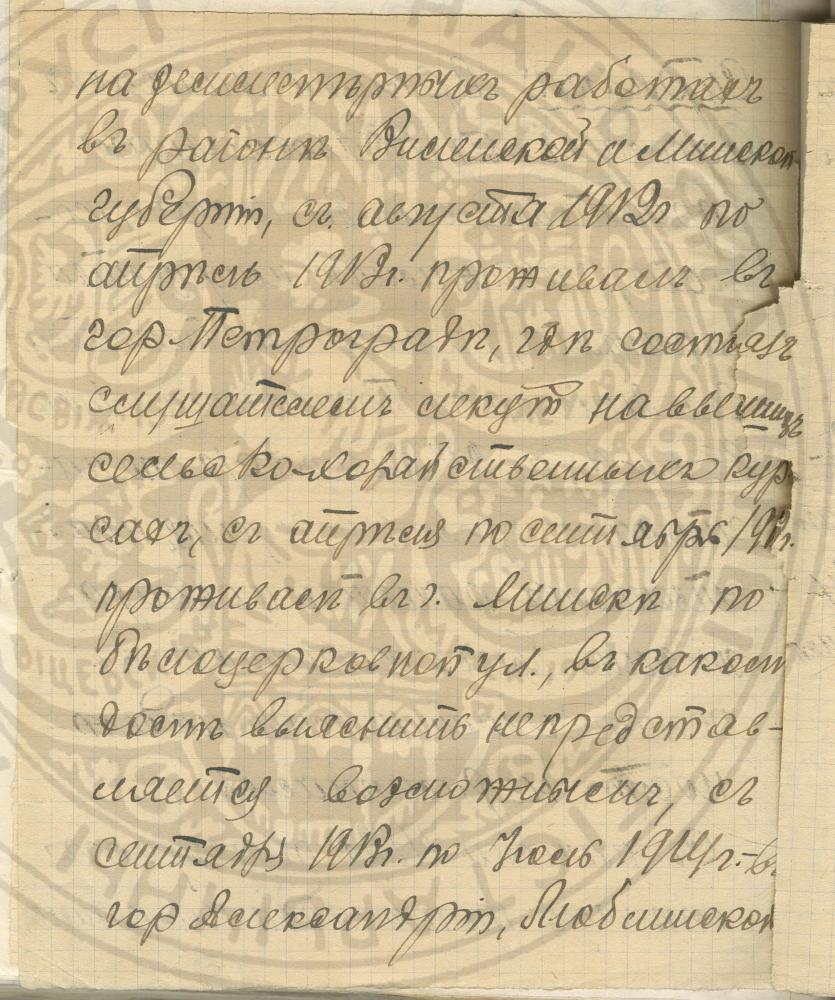 на землемѣрныхъ работахъ
въ раіонѣ Виленской и Минской
губерніи, съ августа 1912г по
апрѣль 1913г. проживалъ въ
гор Петроградѣ, гдѣ состоялъ
слушателемъ на высшихъ
сельско-хозяйственныхъ кур
сахъ, съ апрѣля по сентябрь 191 г.
проживалъ въ г. Минскѣ по
Бѣлоцерковной ул., въ какомъ
домѣ выяснить непредстав-
ляется возможнымъ, съ
сентября 1913г. по Іюль 1914г.-в
гор Александріи, Люблинской